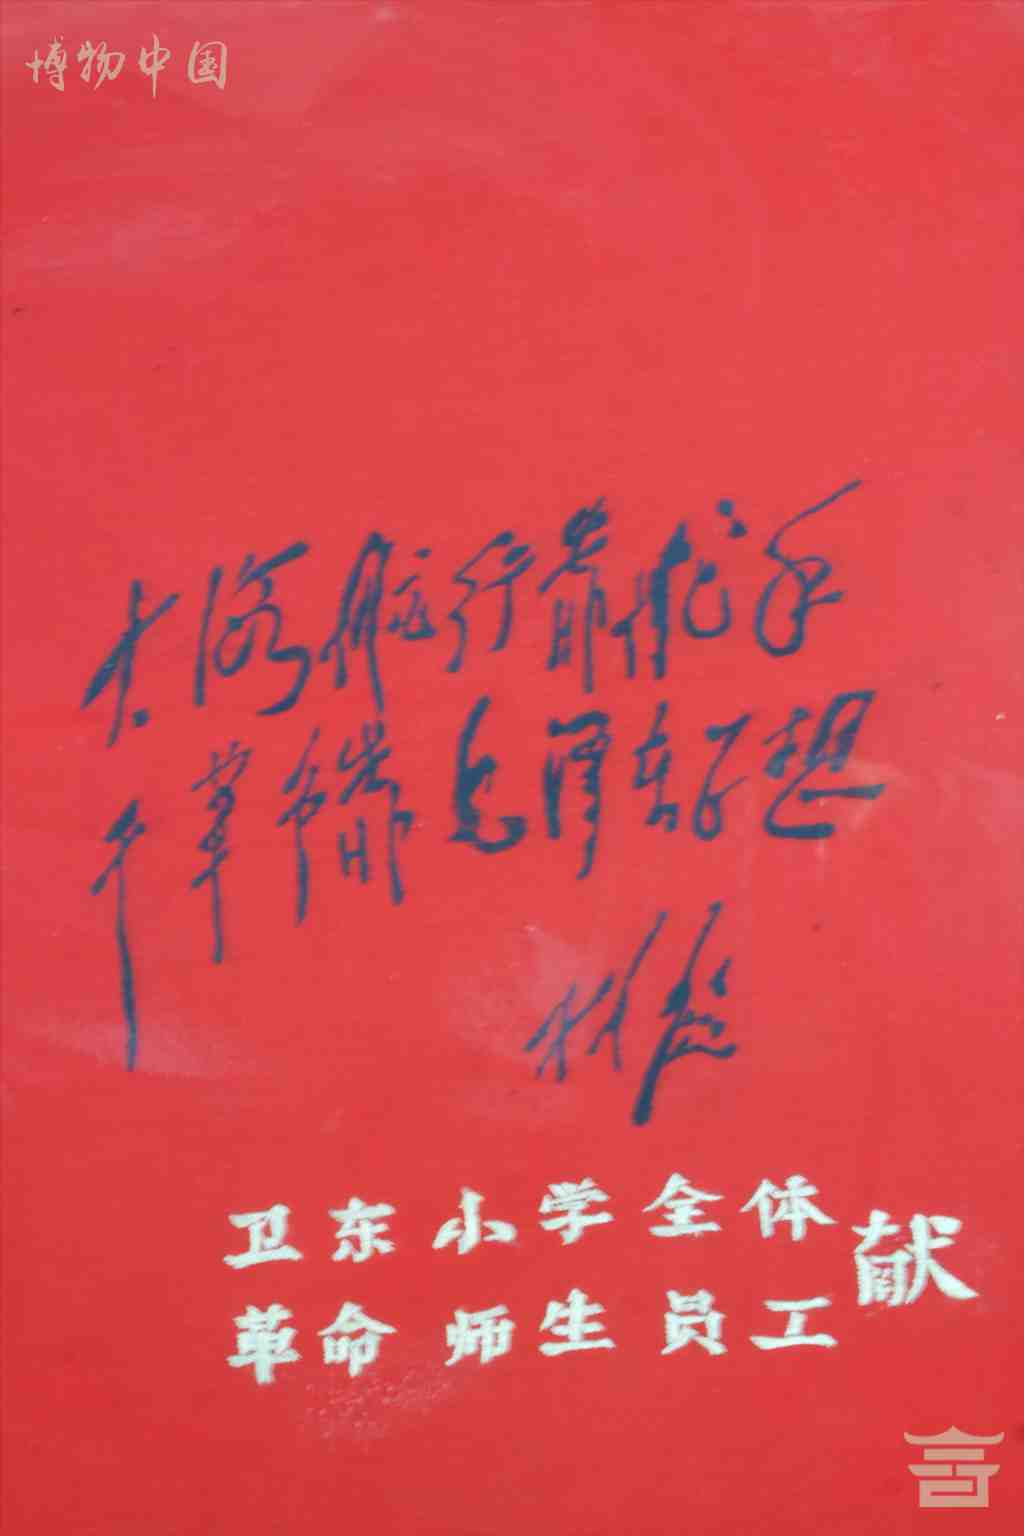 博物中国
大海航行靠舵手
干革命靠毛泽东思想
林彪
卫东小学全体
革命师生员工
献